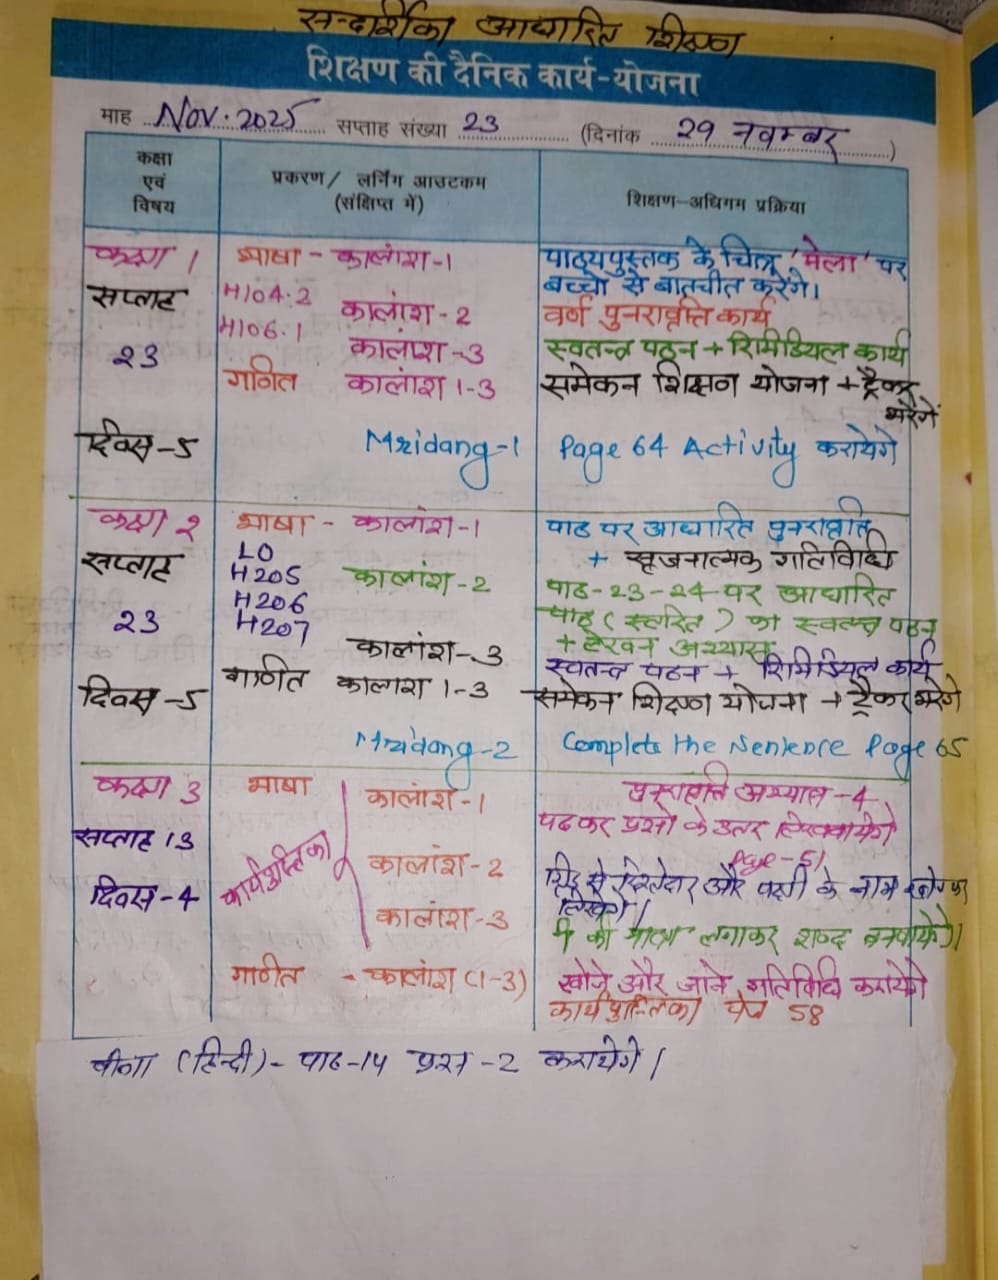 सन्दर्शिका आधारित शिक्षण
शिक्षण की दैनिक कार्य-योजना
माह Nov. 2025 सप्ताह संख्या 23 (दिनांक 29 नवम्बर)
कक्षा एवं विषय
प्रकरण/ लर्निंग आउटकम (संक्षिप्त में)
शिक्षण-अधिगम प्रक्रिया
कक्षा 1
सप्ताह
23
दिवस-5
भाषा - कालांश-1
H104.2
कालांश-2
H106.1
कालांश-3
गणित कालांश 1-3
Mridang-1
पाठ्यपुस्तक के चित्र 'मेला' पर
बच्चों से बातचीत करेंगे।
वर्ण पुनरावृत्ति कार्य
स्वतन्त्र पठन + रिमिडियल कार्य
समेकन शिक्षण योजना + ट्रैकर
भरेगें
Page 64 Activity करायेगे
कक्षा 2
सप्ताह
23
दिवस-5
भाषा - कालांश-1
LO
H205
कालांश-2
H206
H207
कालांश-3
गणित कालांश 1-3
Mridang-2
पाठ पर आधारित पुनरावृत्ति
+ सृजनात्मक गतिविधि
पाठ-23-24 पर आधारित
पाठ (स्तरित) का स्वतन्त्र पठन
+ लेखन अभ्यास
स्वतन्त्र पठन + रिमिडियल कार्य
समेकन शिक्षण योजना + ट्रैकर भरेगे
Complete the Sentence Page 65
कक्षा 3
सप्ताह 13
दिवस-4
भाषा
कार्यपुस्तिका
कालांश-1
कालांश-2
कालांश-3
गणित - कालांश (1-3)
पुनरावृत्ति अभ्यास-4
पढकर प्रश्नों के उत्तर लिखवायेगे
Page-51
से रिश्तेदार और पक्षी के नाम खोजकर
लिखेगे।
की मात्रा लगाकर शब्द बनवायेगे।
खोजे और जाने गतिविधि करायेगे
कार्यपुस्तिका पेज 58
वीणा (हिन्दी)- पाठ-14 प्रश्न-2 करायेगे।